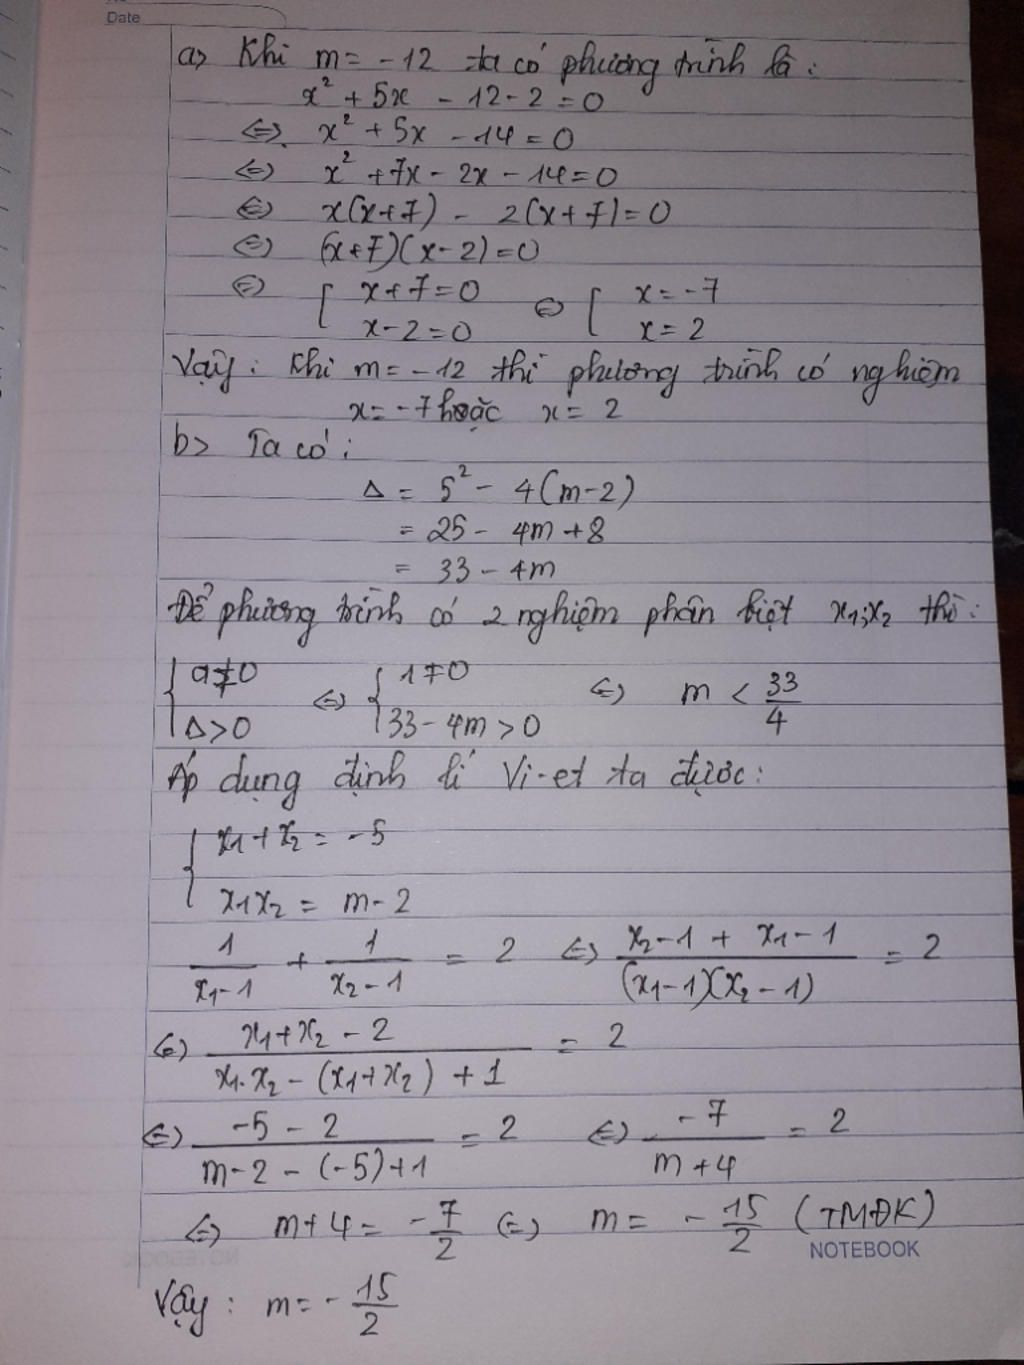 Date
a> Khi m = -12 ta có phương trình là :
x² + 5x - 12 - 2 = 0
<=> x² + 5x - 14 = 0
<=> x² + 7x - 2x - 14 = 0
<=> x(x+7) - 2(x+7) = 0
<=> (x+7)(x-2) = 0
<=> [ x+7=0 <=> [ x = -7
x-2=0 x = 2
Vậy : Khi m = -12 thì phương trình có nghiệm
x = -7 hoặc x = 2
b> Ta có :
Δ = 5² - 4(m-2)
= 25 - 4m + 8
= 33 - 4m
Để phương trình có 2 nghiệm phân biệt x₁;x₂ thì :
{ a≠0 <=> { 1≠0 <=> m < 33/4
Δ>0 33 - 4m > 0
Áp dụng định lí Vi-et ta được :
{ x₁ + x₂ = -5
x₁x₂ = m - 2
1/(x₁-1) + 1/(x₂-1) = 2 <=> (x₂-1 + x₁-1)/((x₁-1)(x₂-1)) = 2
<=> (x₁+x₂-2)/(x₁.x₂ - (x₁+x₂) + 1) = 2
<=> (-5-2)/(m-2-(-5)+1) = 2 <=> -7/(m+4) = 2
<=> m+4 = -7/2 <=> m = -15/2 (TMĐK)
NOTEBOOK
Vậy : m = -15/2